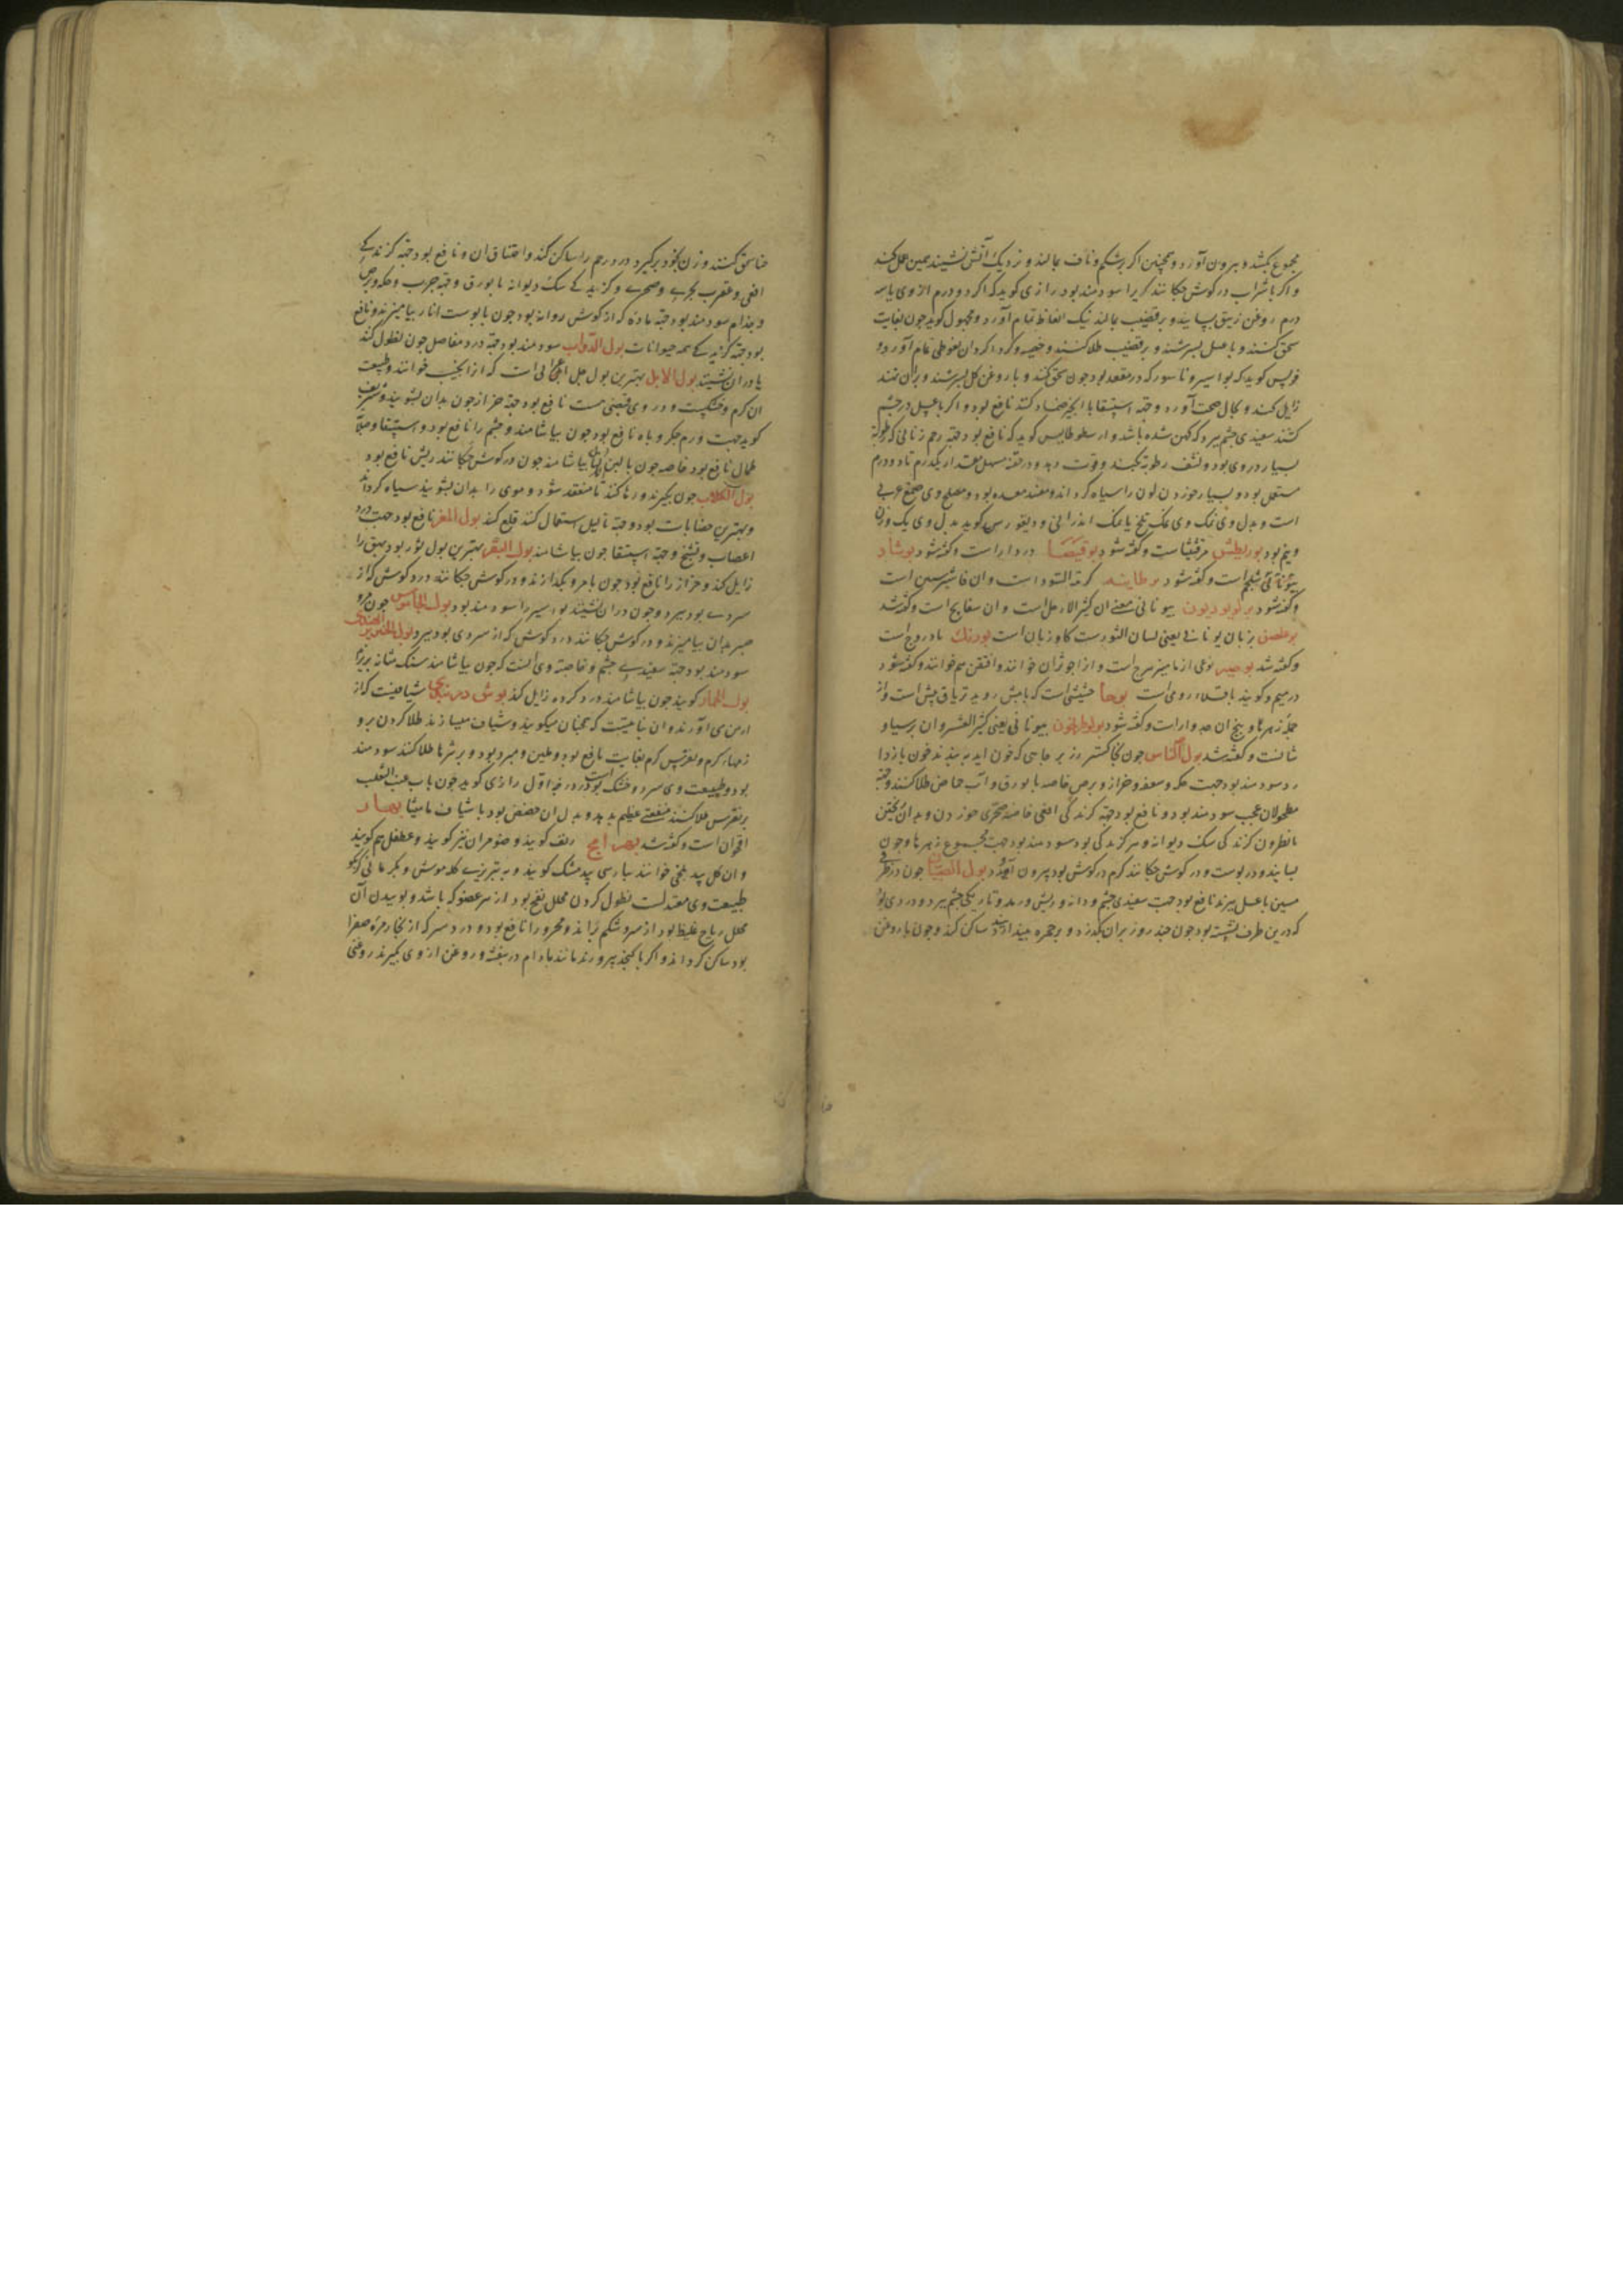 مجموع بکشد و بیرون آورد و همچنین اکر بر شکم و ناف بمالند و نزدیک آتش نشینند همین عمل کند
و اکر با شراب در کوش چکانند کری را سودمند بود رازی کوید که اکر دو درم از وی با سه
درم روغن زنبق بسایند و بر قضیب بمالند نیک انعاظ تمام آورد و مجهول کوید چون بغایت
سحق کنند و با عسل بسرشند و بر قضیب طلا کنند و خصیه و کرداکرد ان نعوظی تمام آورد و
خویس کوید که بواسیر و ناسور که در مقعد بود چون سحق کنند و با روغن کل بسرشند و بر آن نهند
زایل کند و بحال صحت آورد و جهة استسقا با انجیر ضماد کنند نافع بود و اکر با عسل در چشم
کشند سفیدی چشم ببرد که کهن شده باشد و ارسطوطالیس کوید که نافع بود جهة رحم زنانی که رطوبة
بسیار در وی بود و نشف رطوبة بکند و قوت دهد و در حقنه مسهل مقدار یکدرم تا دو درم
مستعمل بود و بسیار خوردن لون را سیاه کرداند و مفسد معده بود و مصلح وی صمغ عربی
است و بدل وی نمک وی نمک تلخ یا نمک اندرانی و دیقوریدس کوید بدل وی یک وزن
و نیم بود بوریطس مرقشیثاست و کفته شود بوقیصا دردار است و کفته شود بوشاد
بیونانی شلجم است و کفته شود کرمة السودا است و ان فاشرستین است
و کفته شود بولوبودیون بیونانی معنی ان کثیر الارجل است و ان بسفایج است و کفته شد
بوغلصن بزبان یونانی یعنی لسان الثور است کاو زبان است بورنک بادروج است
و کفته شد بوصیر نوعی از ماهیزهرج است و انرا جوزان خوانند و افقن هم خوانند و کفته شود
در میم و کویند باقلاء رومی است بوحا حشیشی است که با بیش روید تریاق بیش است و از
جمله زهرها و بیخ ان جدوار است و کفته شود بولوطریخون بیونانی یعنی کثیر الشعر و ان برسیاو
شانست و کفته شد بول الناس چون با خاکستر رز بر جایی که خون اید به بندند خون باز دا
رد سودمند بود جهت حکه و سعفه و حزاز و برص خاصه با بورق و آب حماض طلا کنند و جهة
مطحولان عجب سودمند بود و نافع بود جهة کزندکی افعی خاصه صخری خوردن و بدان ریختن
با نطرون کزندکی سک دیوانه و هر کزندکی بود سودمند بود جهت مجموع زهرها و چون
بسایند و در پوست و در کوش چکانند کرم در کوش بود بیرون آورد بول الصبیان چون در ظرفی
مسین با عسل بپزند نافع بود جهت سفیدی چشم و دانه و ریش و رمد و تاریکی چشم ببرد و دردی بول
که در بن ظرف نشسته بود چون چند روز بران بکذرد و بر حمره بیندایند ساکن کند و چون با روغن
حنا سحق کنند و زن بخود برکیرد درد رحم را ساکن کند و اختناق ان و نافع بود جهة کزندکی
افعی و عقرب بحری و صخری و کزیدکی سک دیوانه با بورق و جهة جرب و حکه و برص
و جذام سودمند بود جهة ماده که از کوش روانه بود چون با پوست انار بیامیزند و نافع
بود جهة کزیدکی همه حیوانات بول الدواب سودمند بود جهة درد مفاصل چون نطول کنند
یا در ان نشینند بول الابل بهترین بول جمل اعرابی است که انرا نجیب خوانند و طبیعت
ان کرم و خشکست و در وی قبضی هست نافع بود جهة حزاز چون بدان بشویند و شریف
کوید جهت ورم جکر و باه نافع بود چون بیاشامند و چشم را نافع بود و استسقا و صلابة
طحال نافع بود خاصه چون با لبن لقاح بیاشامند چون در کوش چکانند ریش نافع بود
بول الکلاب چون بکیرند و رها کنند تا منعقد شود و موی را بدان بشویند سیاه کرداند
و بهترین خضابات بود و جهة ثالیل استعمال کنند قلع کند بول المعز نافع بود جهت درد
اعصاب و تشنج و جهة استسقا چون بیاشامند بول البقر بهترین بول ثور بود بهق را
زایل کند و حزاز را نافع بود چون با مر و بکدازند و در کوش چکانند درد کوش که از
سردی بود ببرد و چون در ان نشینند بواسیر را سودمند بود بول الجاموس چون مر و
صبر بدان بیامیزند و در کوش چکانند درد کوش که از سردی بود ببرد بول الخنزیر
سودمند بود جهة سفیدی چشم و خاصه وی انست که چون بیاشامند سنک مثانه بریزد
بول الحمار کویند چون بیاشامند درد کرده زایل کند بوش دربندی شیافیست که از
ارمن می آورند و ان نباتیست که همچنان میکوبند و شیاف میسازند طلا کردن بر و
رمهاء کرم و نقرس کرم بغایت نافع بود و ملین و مبرد بود و بر بثرها طلا کنند سودمند
بود و طبیعت وی سرد و خشک است در درجه اول رازی کوید چون با آب عنب الثعلب
بر نقرس طلا کنند منفعتی عظیم بدهد و بدل ان حضض بود با شیاف مامیثا بهار
اقحوان است و کفته شد بهرامج رنف کویند و ضومران نیز کویند و عطفل هم کویند
و ان کل بید بلخی خوانند بپارسی بید مشک کویند و به تبریزی کله موش و بکرمانی کربکو
طبیعت وی معتدلست نطول کردن محلل نفخ بود از هر عضو که باشد و بوییدن آن
محلل ریاح غلیظ بود از سر و شکم براند و محرور را نافع بود و درد سر که از بخار مره صفرا
بود ساکن کرداند و اکر با کنجد بپرورند مانند بادام در بنفشه و روغن از وی بکیرند روغنی